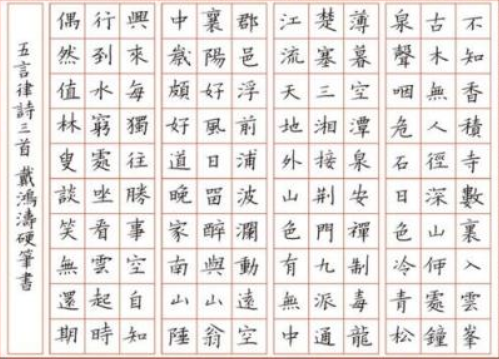 不知香積寺數裏入雲峯
古木無人徑深山何處鐘
泉聲咽危石日色冷青松
薄暮空潭泉安禪制毒龍
楚塞三湘接荆門九派通
江流天地外山色有無中
郡邑浮前浦波瀾動遠空
襄陽好風日留醉與山翁
中歲頗好道晚家南山陲
興來每獨往勝事空自知
行到水窮處坐看雲起時
偶然值林叟談笑無還期
五言律詩三首 戴鴻濤硬筆書